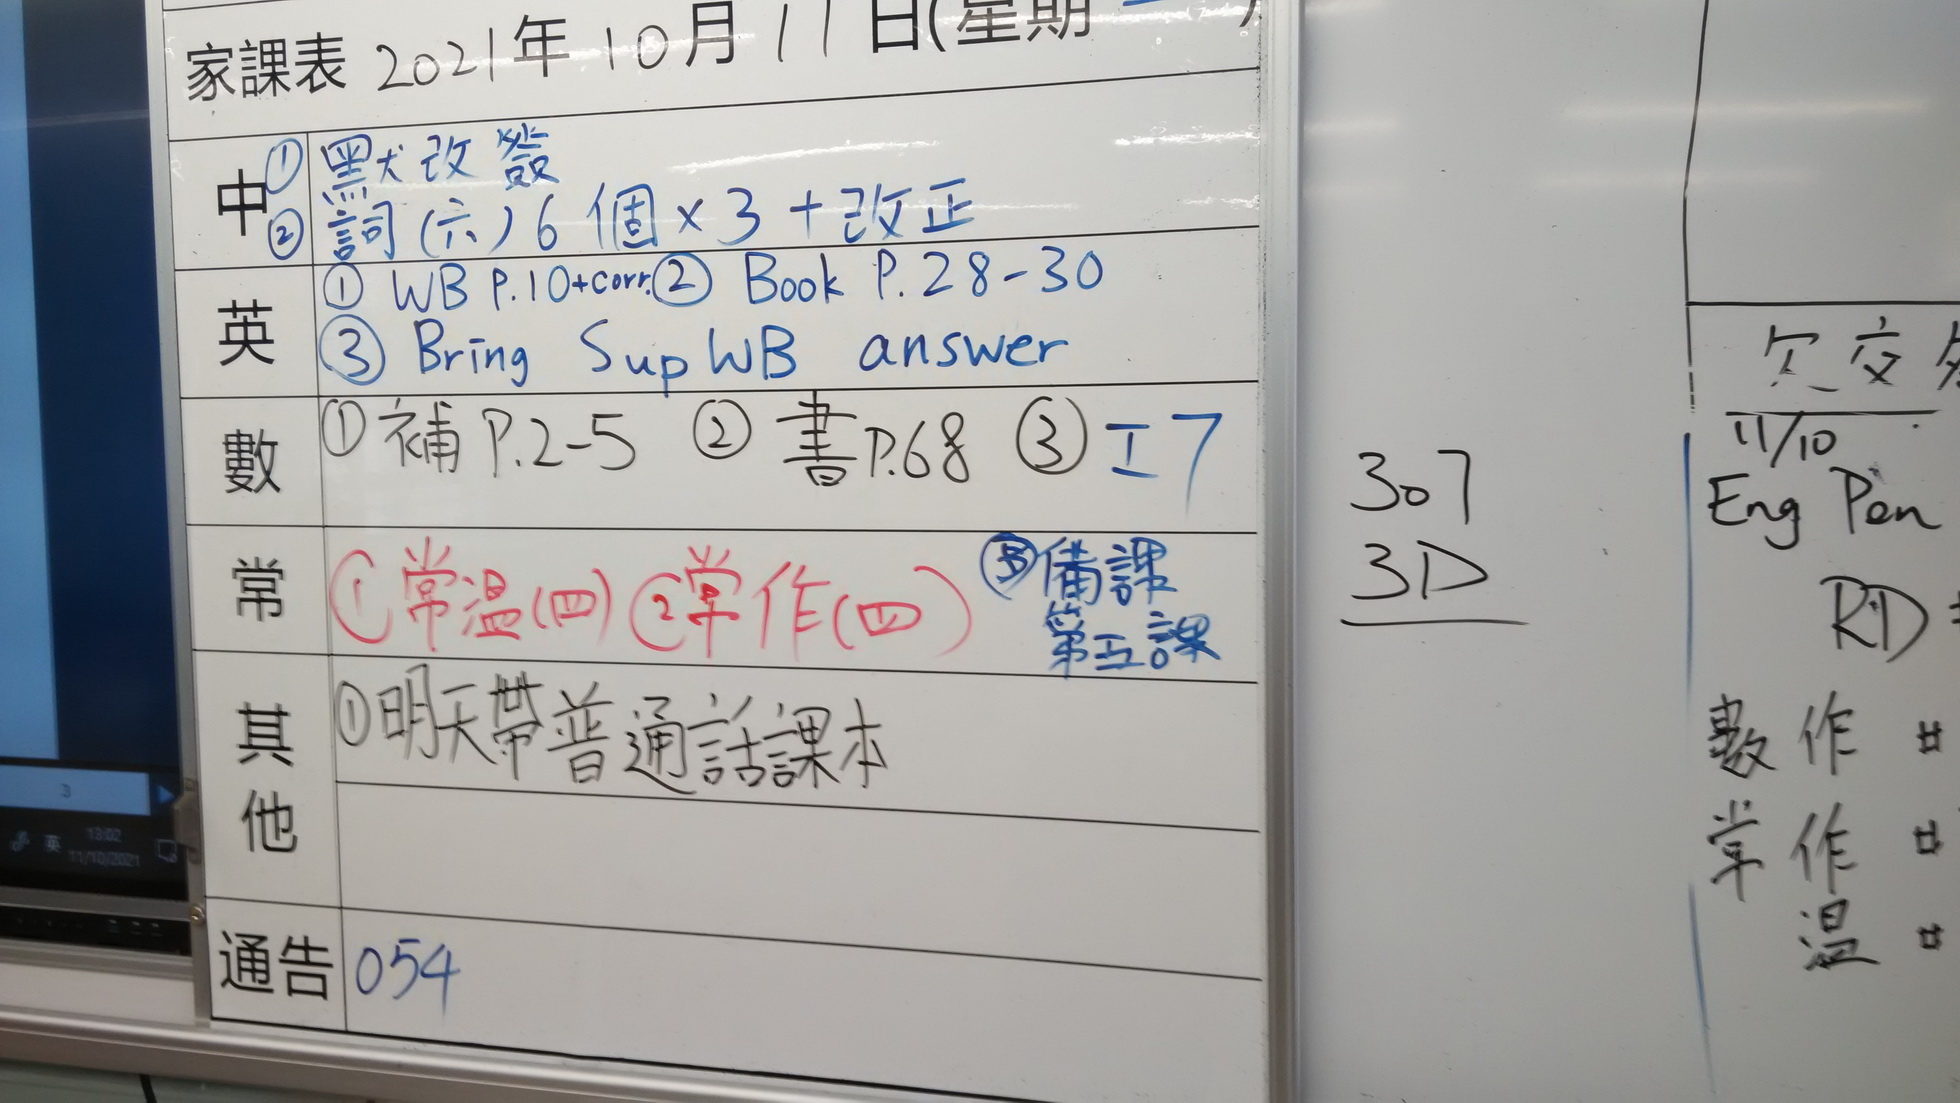 家課表 2021年10月11日(星期一
中 ① 默改簽
② 詞(六)6個×3+改正
英 ① WB P.10+corr. ② Book P.28-30
③ Bring Sup WB answer
數 ① 補P.2-5 ② 書P.68 ③ 工7
常 ① 常溫(四) ② 常作(四) ③ 備課
第五課
其他 ① 明天帶普通話課本
通告 054
307
3D
欠交
11/10
Eng Pen
RD
數作 #
常作 #
溫 #
3
英 13:02
11/10/2021